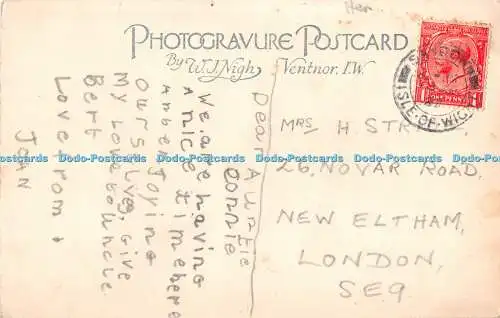 Her
PHOTOGRAVURE POSTCARD
By W.J. Nigh, Ventnor, I.W.
ONE PENNY
ISLE-OF-WIG
Dear Auntie
Connie
We are having
a nice time here
and en Joying
ourselves, give
my love to uncle
Bert
Love from
JOAN
MRS H STR
26, NOVAR ROAD,
NEW ELTHAM,
LONDON,
SE9
Dodo-Postcards Dodo-Postcards Dodo-Postcards Dodo-Postcards Dodo-Postcards Dodo-Postcards